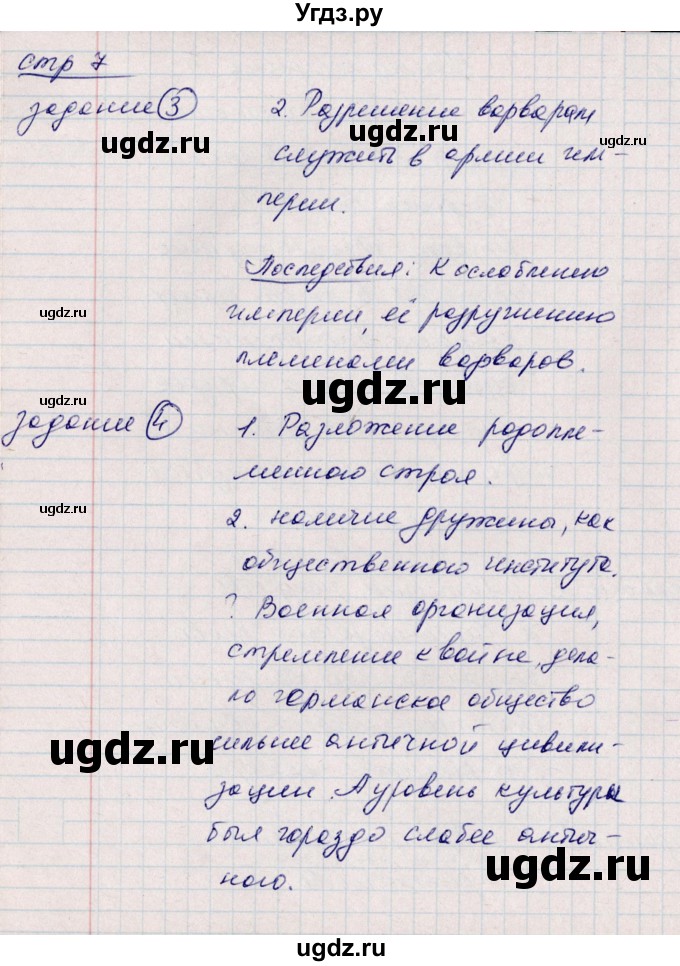 Угдз.ру
стр 7
задание 3 2. Разрешение варварам
ugdz.ru ugdz.ru
служить в армии им-
перии.
Последствия: К ослаблению
ugdz.ru
империи, её разрушению
племенами варваров.
ugdz.ru ugdz.ru
задание 4 1. Разложение родопле-
менного строя.
ugdz.ru
2. наличие дружины, как
общественного института.
? Военная организация,
стремление к войне, дела-
ло германское общество
ugdz.ru
сильнее античной цивили-
зации. А уровень культуры
был гораздо слабее антич-
ugdz.ru
ного.
ugdz.ru